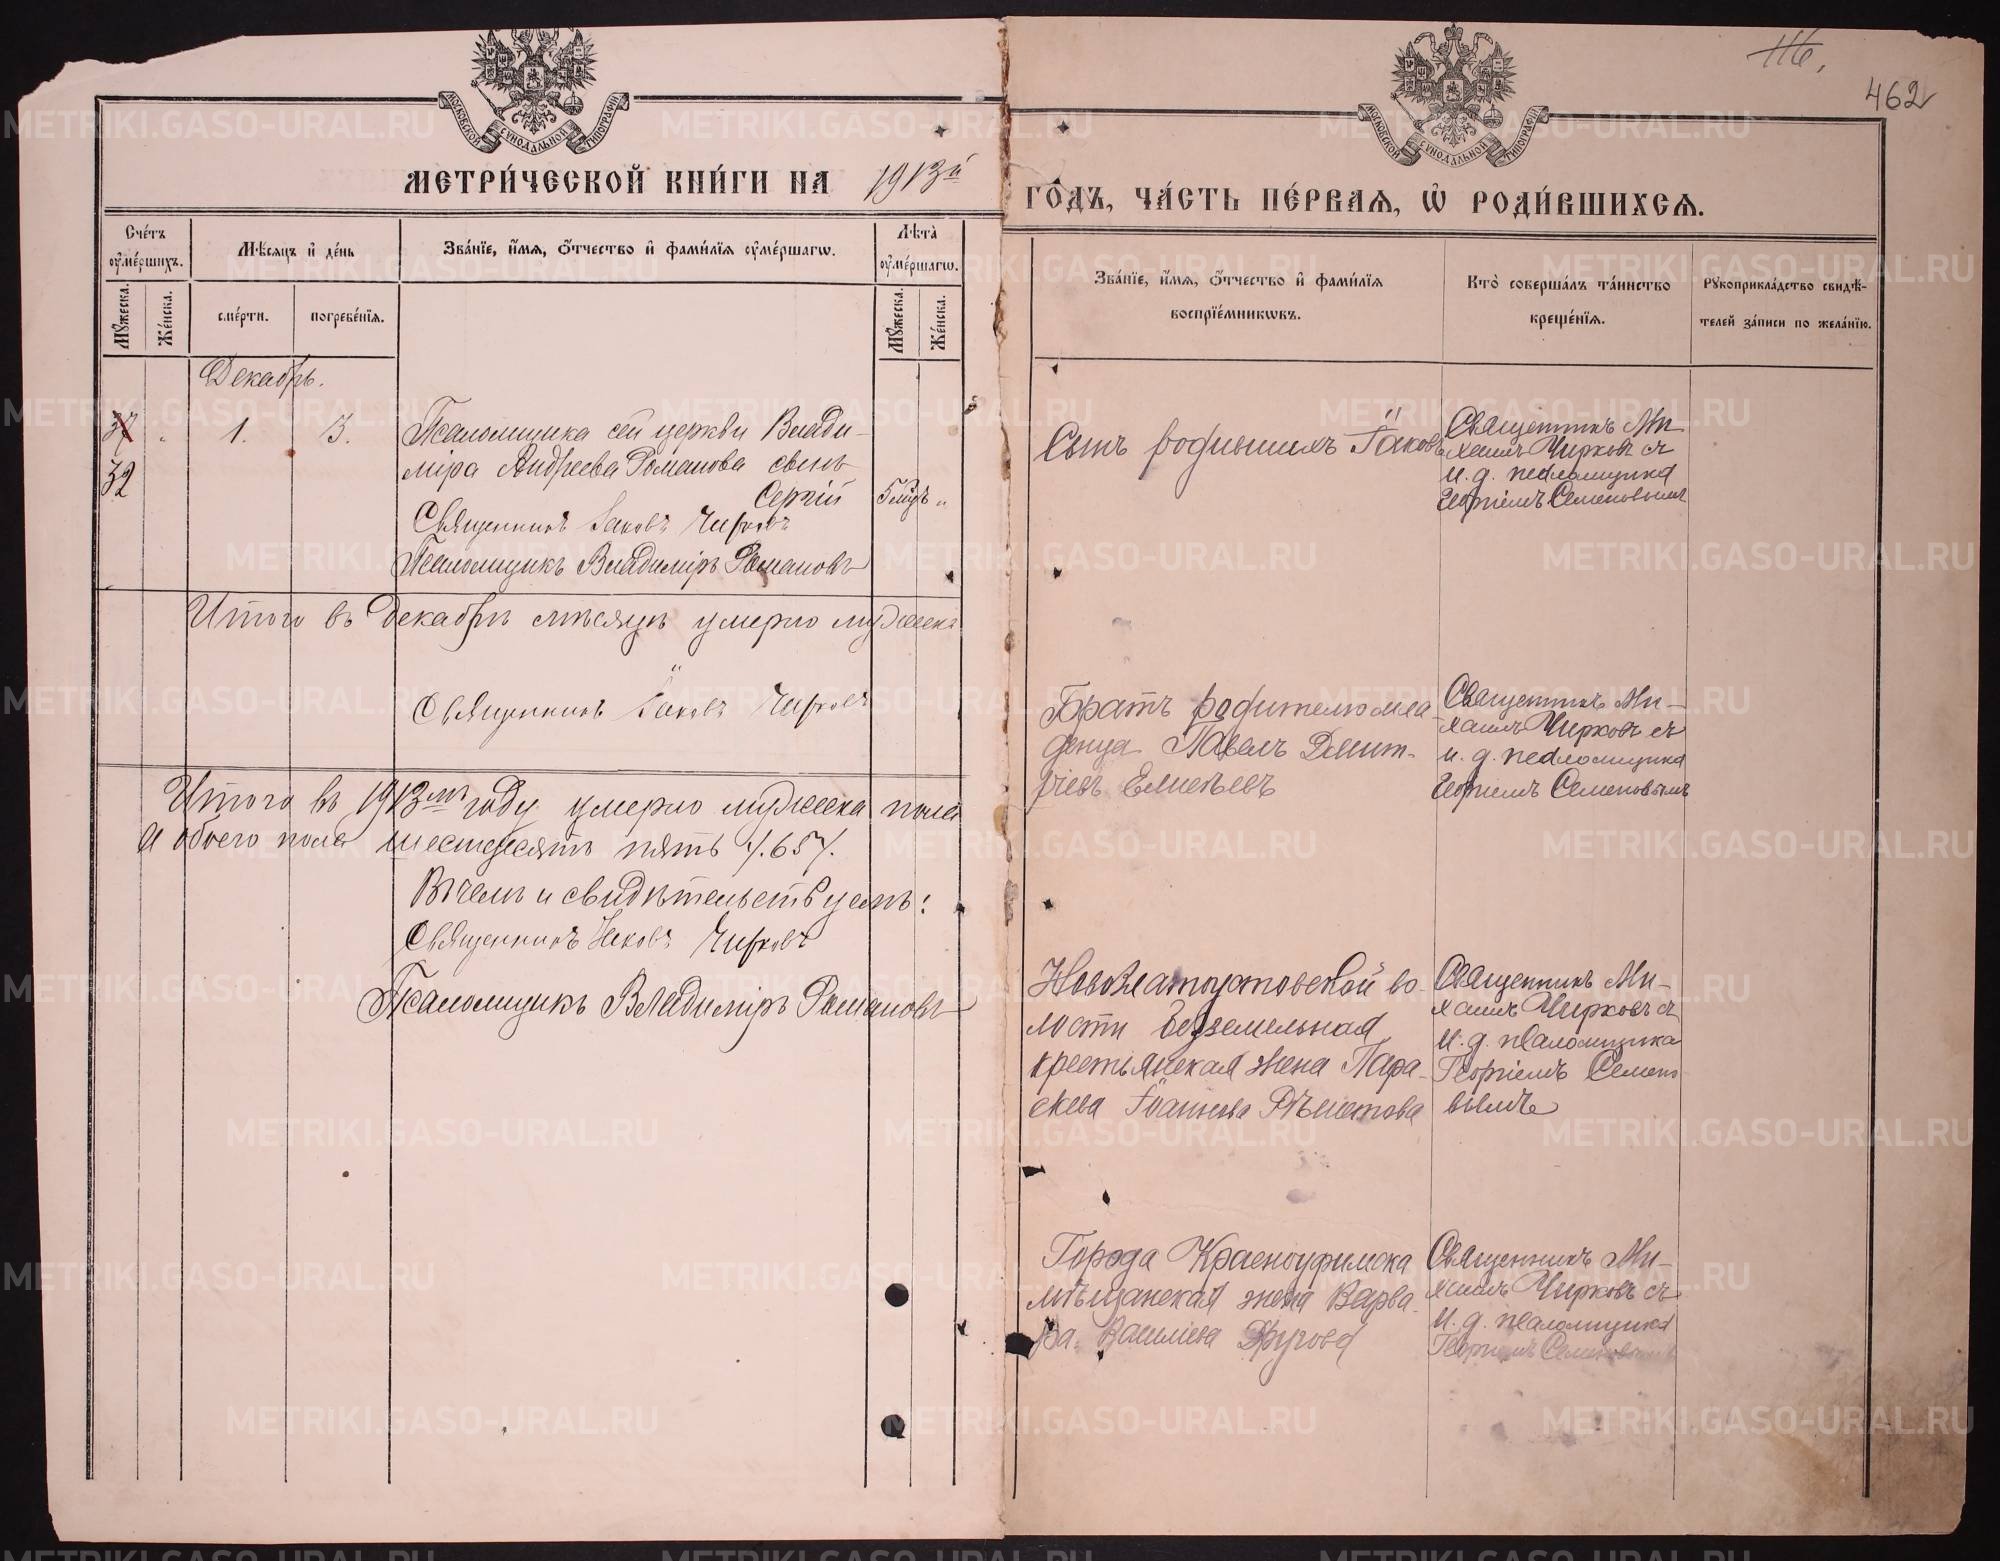 116.
462
МОСКОВСКОЙ СѴНОДАЛЬНОЙ ТИПОГРАФІИ
МЕТРИ́ЧЕСКОЙ КНИ́ГИ НА 1913й
Сче́тъ ᲂу҆ме́ршихъ.
Мѣ́сяцъ и҆ де́нь
Зва́нїе, и҆́мѧ, ѻ҆́тчество и҆ фами́лїѧ ᲂу҆ме́ршагѡ.
Лѣ́та ᲂу҆ме́ршагѡ.
Мꙋ́жеска.
Же́нска.
сме́рти.
погребе́нїѧ.
Мꙋ́жеска.
Же́нска.
Декабрь.
37 " 1. 3. Псаломщика сей церкви Влади-
32 міра Андреева Романова сынъ
Сергій 5 мцъ "
Священникъ Іаковъ Чирковъ
Псаломщикъ Владиміръ Романовъ
Итого въ Декабрѣ мѣсяцѣ умерло мужеска
Священникъ Іаковъ Чирковъ
Итого въ 1913мъ году умерло мужеска пола
а обоего пола шестьдесятъ пять /.65/.
Въ чемъ и свидѣтельствуемъ:
Священникъ Іаковъ Чирковъ
Псаломщикъ Владиміръ Романовъ
МОСКОВСКОЙ СѴНОДАЛЬНОЙ ТИПОГРАФІИ
ГО́ДЪ, ЧА́СТЬ ПЕ́РВАѦ, Ѽ РОДИ́ВШИХСѦ.
Зва́нїе, и҆́мѧ, ѻ҆́тчество и҆ фами́лїѧ
воспрїе́мникѡвъ.
Кто̀ соверша́лъ та́инство
креще́нїѧ.
Рꙋкоприкла́дство свидѣ́-
телей за́писи по жела́нїю.
Сынъ родившихъ Іаковъ
Священникъ Ми-
хаилъ Чирковъ съ
и. д. псаломщика
Георгіемъ Семеновымъ
Братъ родителю мла-
денца Павелъ Димит-
ріевъ Елисѣевъ
Священникъ Ми-
хаилъ Чирковъ съ
и. д. псаломщика
Георгіемъ Семеновымъ
Новозлатоустовской во-
лости безземельная
крестьянская жена Пара-
скева Іоаннова Рѣшетова
Священникъ Ми-
хаилъ Чирковъ съ
и. д. псаломщика
Георгіемъ Семено-
вымъ
Города Красноуфимска
мѣщанская жена Варва-
ра Василіева
Священникъ Ми-
хаилъ Чирковъ съ
и. д. псаломщика
Георгіемъ Семеновымъ
METRIKI.GASO-URAL.RU